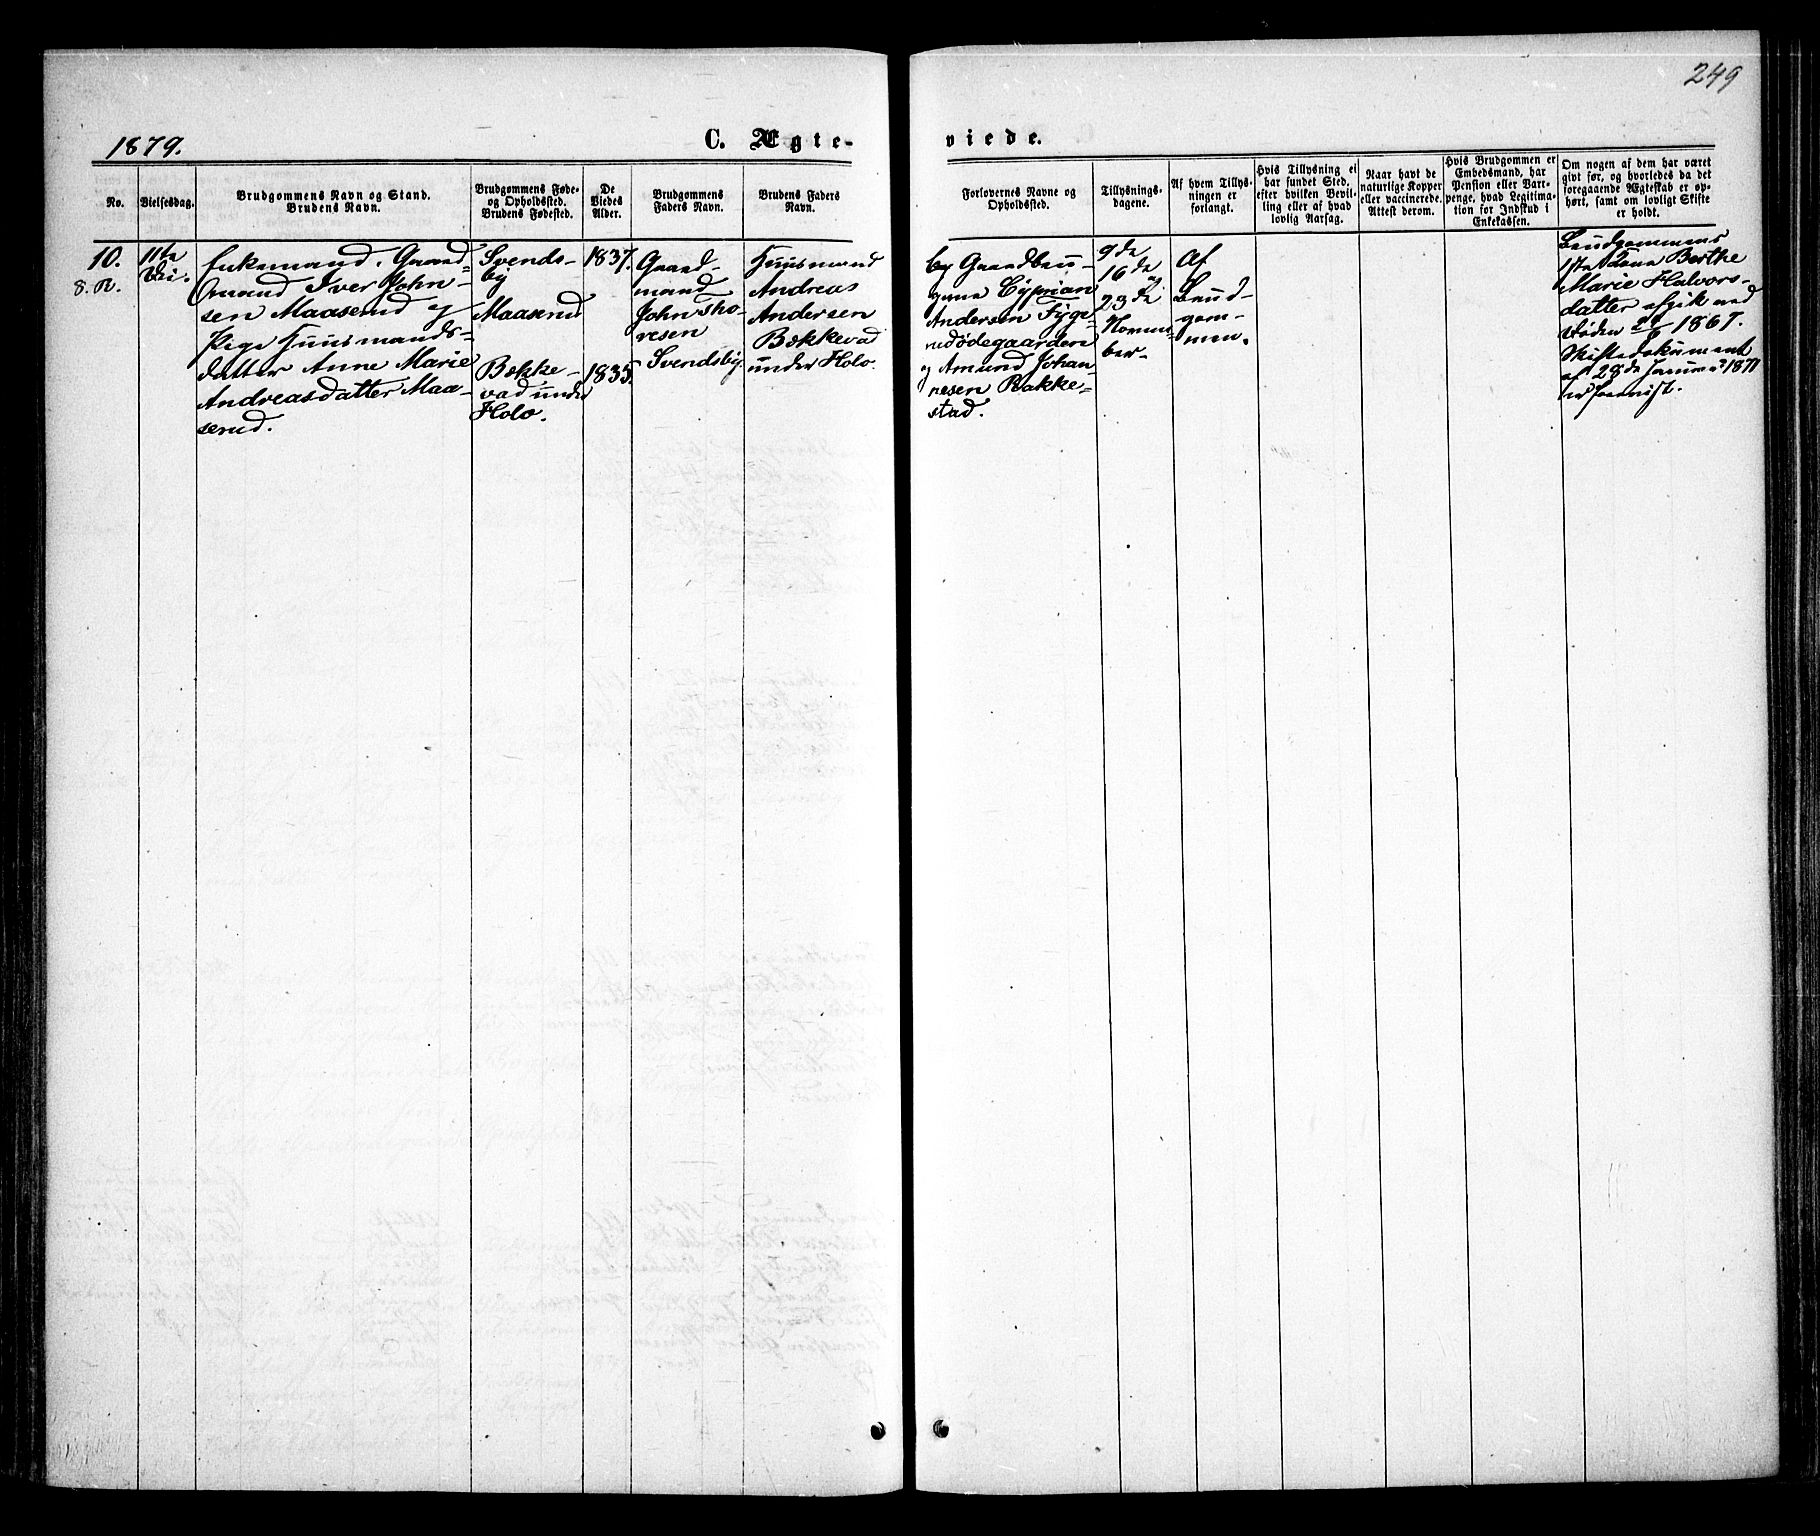 249
1879.
C. Ægte-
viede.
No.
Vielsesdag.
Brudgommens Navn og Stand.
Brudens Navn.
Brudgommens Føde-
og Opholdssted.
Brudens Fødested.
De
Viedes
Alder.
Brudgommens
Faders Navn.
Brudens Faders
Navn.
Forlovernes Navne og
Opholdssted.
Tillysnings-
dagene.
Af hvem Tillys-
ningen er
forlangt.
Hvis Tillysning ei
har fundet Sted,
efter hvilken Bevil-
ling eller af hvad
lovlig Aarsag.
Naar havt de
naturlige Kopper
eller vaccinerede.
Attest derom.
Hvis Brudgommen er
Embedsmand, har
Pension eller Vart-
penge, hvad Legitima-
tion for Indskud i
Enkekassen.
Om nogen af dem har været
givt før, og hvorledes da det
foregaaende Ægteskab er op-
hørt, samt om lovligt Skifte
er holdt.
10.
8. N.
11te
Enkemand, Gaard-
mand Iver John-
sen Maaserud og
Pige Huusmands-
datter Anne Marie
Andreasdatter Maa-
serud.
Svends-
by
Maaserud
Bække-
vad under
Holo.
1837.
1835.
Gaard-
mand
John Tho-
resen
Svendsby.
Huusmand
Andreas
Andersen
Bækkevad
under Holo.
Gaardbru-
gerne Cyprian
Andersen Tyge-
rudødegaarden
og Amund Johan-
nesen Rakke-
stad.
9de
16de og
23de
Novem-
ber.
Af
Brud-
gom-
men.
Brudgommens
1ste Kone Berthe
Marie Halvors-
datter afgik ved
Døden 1867.
Skiftedokument
af 28de Januar 1871
er foreviist.